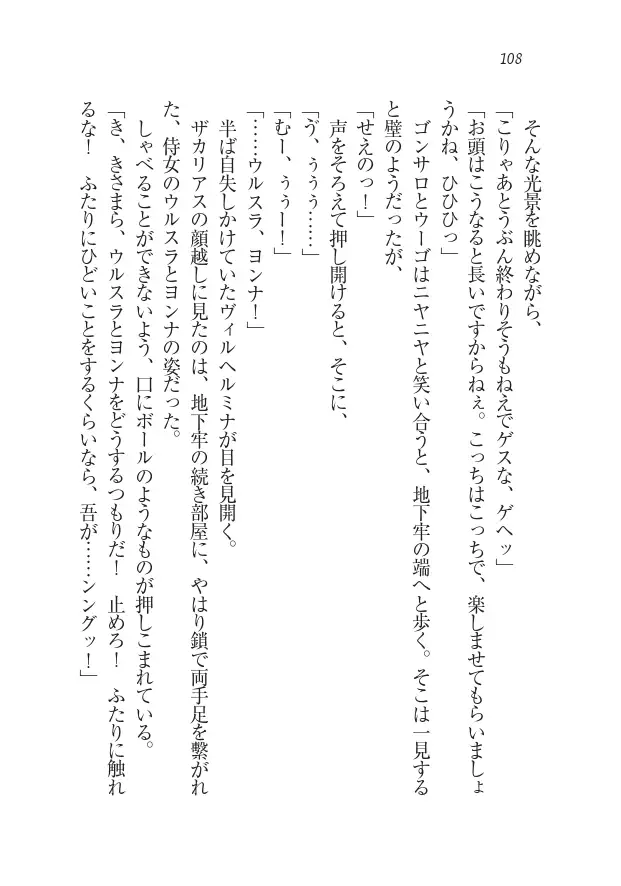 108
そんな光景を眺めながら、
「こりゃあとうぶん終わりそうもねえでゲスな、ゲヘッ」
「お頭はこうなると長いですからねぇ。こっちはこっちで、楽しませてもらいましょ
うかね、ひひひっ」
ゴンサロとウーゴはニヤニヤと笑い合うと、地下牢の端へと歩く。そこは一見する
と壁のようだったが、
「せえのっ！」
声をそろえて押し開けると、そこに、
「ゔ、ぅぅぅ……」
「むー、ぅぅー！」
「……ウルスラ、ヨンナ！」
半ば自失しかけていたヴィルヘルミナが目を見開く。
ザカリアスの顔越しに見たのは、地下牢の続き部屋に、やはり鎖で両手足を繋がれ
た、侍女のウルスラとヨンナの姿だった。
しゃべることができないよう、口にボールのようなものが押しこまれている。
「き、きさまら、ウルスラとヨンナをどうするつもりだ！　止めろ！　ふたりに触れ
るな！　ふたりにひどいことをするくらいなら、吾が……ンングッ！」